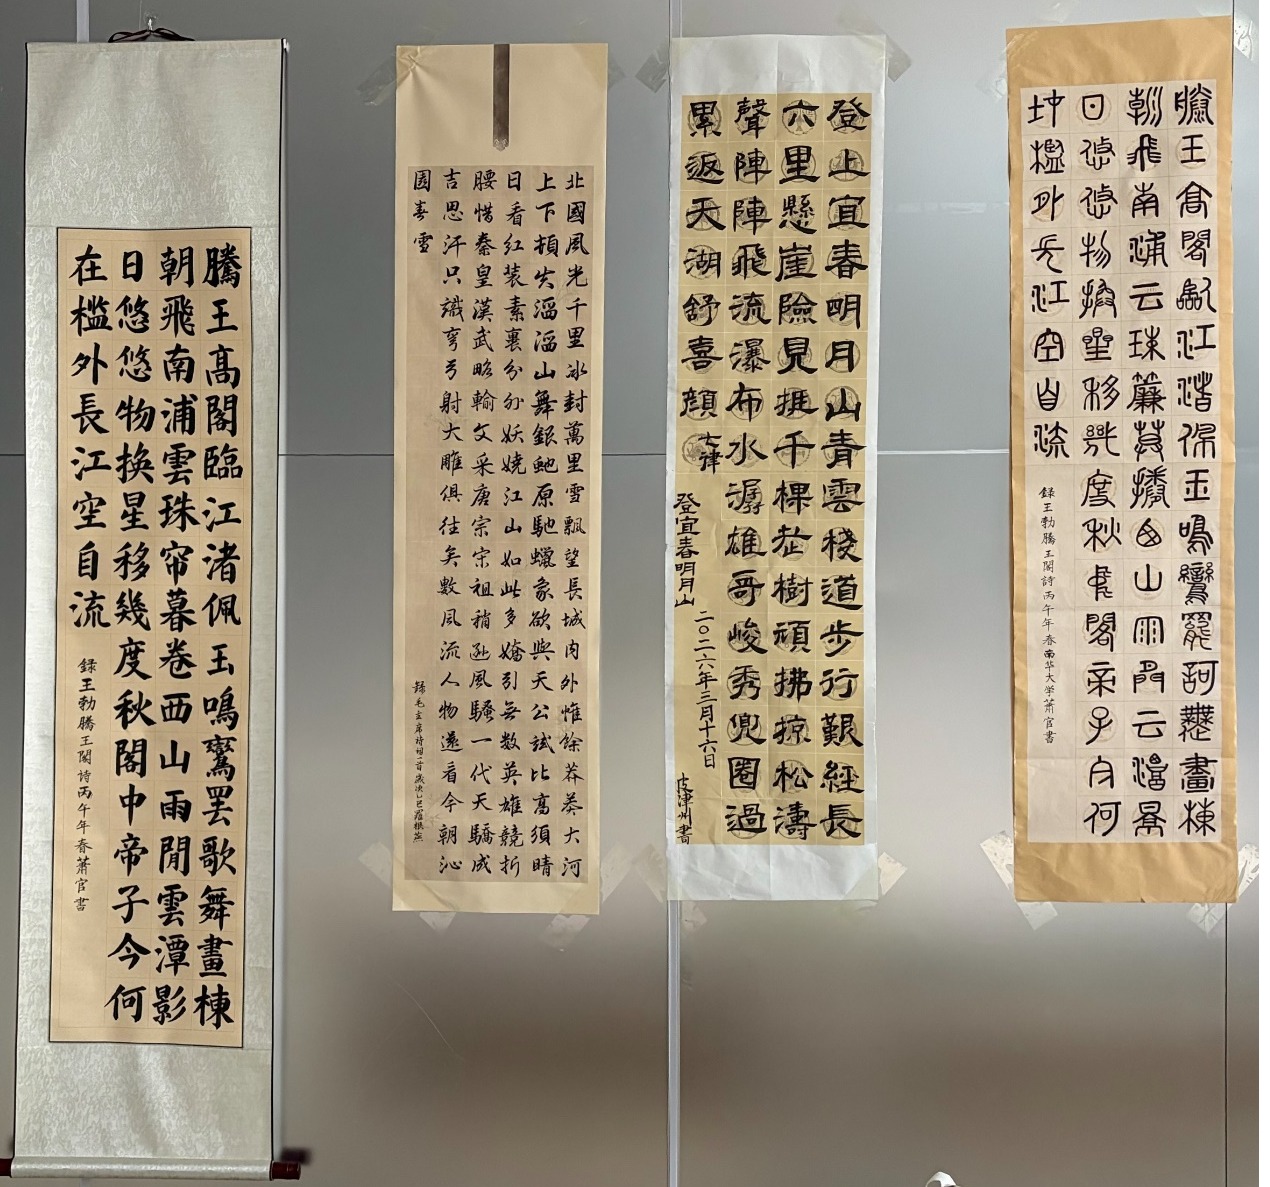 騰王高閣臨江渚佩玉鳴鸞罢歌舞畫棟
朝飛南浦雲珠帘暮卷西山雨閒雲潭影
日悠悠物换星移幾度秋閣中帝子今何
在檻外長江空自流
録王勃騰王閣詩丙午年春萧官書
北國風光千里冰封萬里雪飄望長城内外惟餘莽莽大河
上下頓失滔滔山舞銀蛇原馳蠟象欲與天公試比高須晴
日看红装素裹分外妖娆江山如此多嬌引無数英雄競折
腰惜秦皇漢武略輸文采唐宗宋祖稍逊風騷一代天驕成
吉思汗只識弯弓射大雕俱往矣數风流人物還看今朝沁
園春雪
録毛主席詩詞一首歲次乙巳
登上宜春明月山青雲棧道步行艱經長
六里懸崖險見捱千棵茬樹頑拂掠松濤
聲陣陣飛流瀑布水潺雄哥峻秀兜圈過
累返天湖舒喜顔
七律
登宜春明月山
二〇二六年三月十六日
皮津州書
滕王高閣臨江渚佩玉鳴鸞罷訶舞畫棟
朝飛南浦云珠簾暮撥西山雨門云潭景
日悠悠物換星移幾度秋中閣帝子今何
在檻外長江空自流
録王勃騰王閣詩丙午年春南华大学萧官書